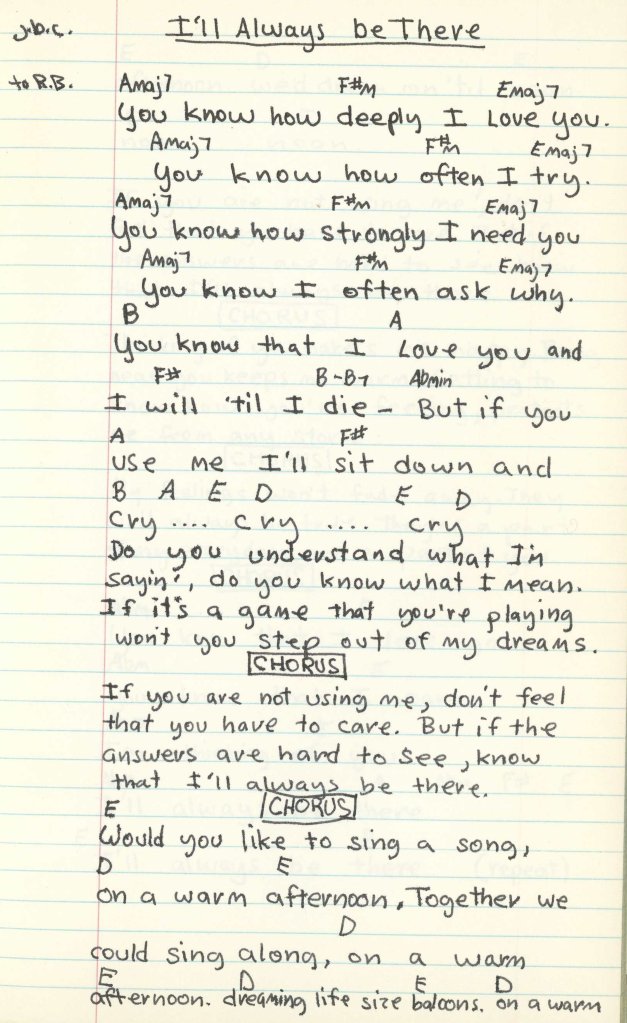 J.B.C.
I'll Always be There
to R.B.
Amaj7 F#m Emaj7
You know how deeply I Love you.
Amaj7 F#m Emaj7
You know how often I try.
Amaj7 F#m Emaj7
You know how strongly I need you
Amaj7 F#m Emaj7
You know I often ask why.
B A
You know that I Love you and
F# B-B7 Abmin
I will 'til I die – But if you
A F#
use me I'll sit down and
B A E D E D
Cry .... cry .... cry
Do you understand what I'm
sayin', do you know what I mean.
If it's a game that you're playing
won't you step out of my dreams.
CHORUS
If you are not using me, don't feel
that you have to care. But if the
answers are hard to see, know
that I'll always be there.
E CHORUS
Would you like to sing a song,
D E
on a warm afternoon, Together we
D
could sing along, on a warm
E D E D
afternoon. dreaming life size baloons. on a warm